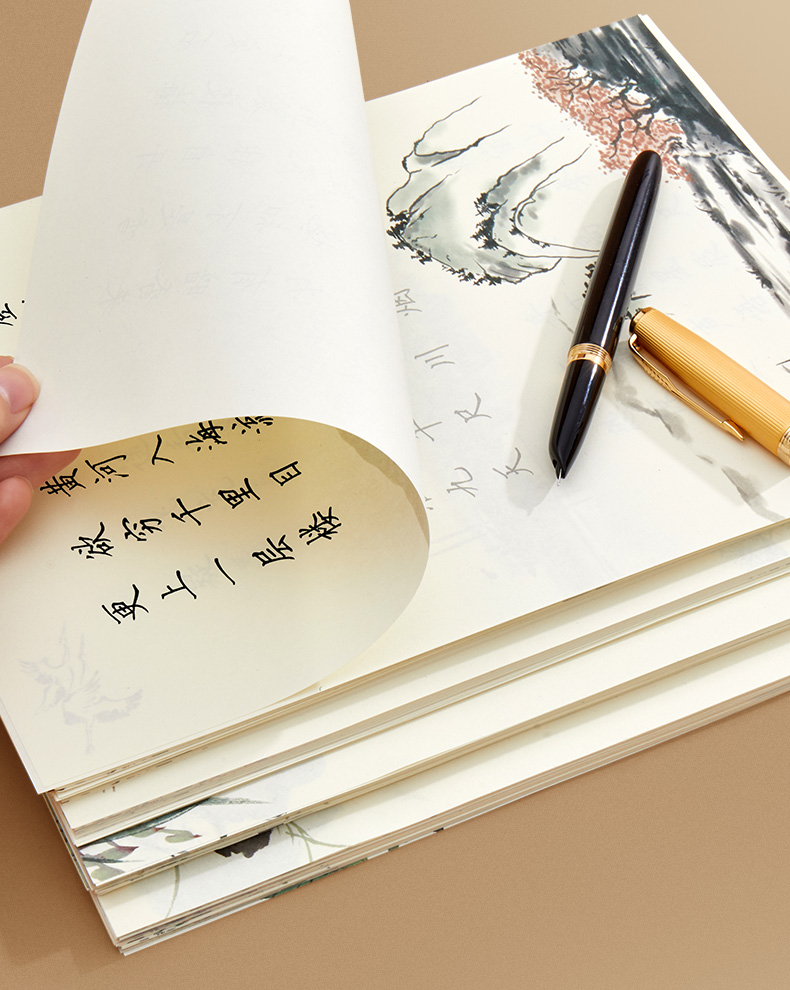 黄河入海流
欲穷千里目
更上一层楼
烟
川
千尺
九天